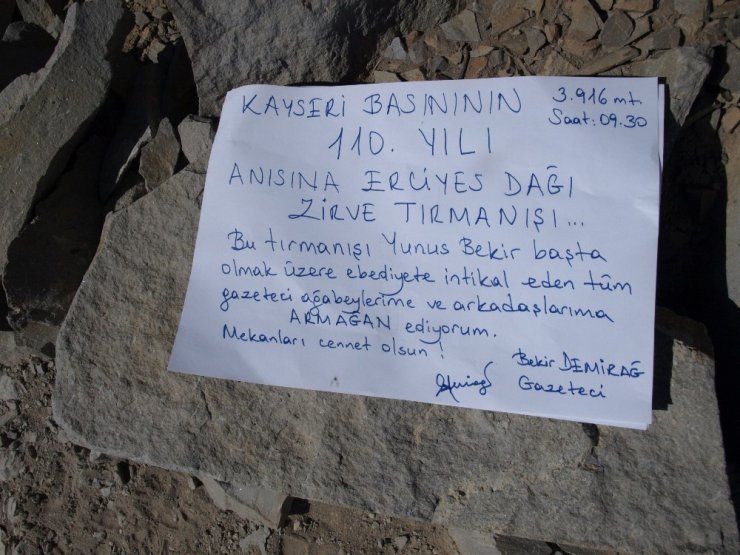 KAYSERİ BASINININ
3.916 mt.
Saat: 09.30
110. YILI
ANISINA ERCİYES DAĞI
ZİRVE TIRMANIŞI...
Bu tırmanışı Yunus Bekir başta
olmak üzere ebediyete intikal eden tüm
gazeteci ağabeylerime ve arkadaşlarıma
ARMAĞAN ediyorum.
Mekanları cennet olsun!
Bekir DEMİRAĞ
Gazeteci